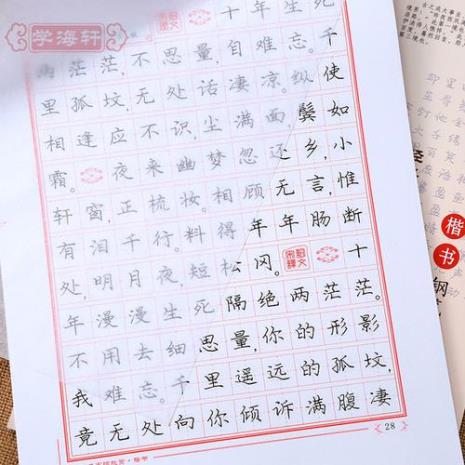 学海轩
十年生死
两茫茫,不思量,自难忘。千
里孤坟,无处话凄凉。纵使
相逢应不识,尘满面,鬓如
霜。夜来幽梦忽还乡,小
轩窗,正梳妆。相顾无言,惟
有泪千行。料得年年肠断
处,明月夜,短松冈。十
年漫漫生死隔绝两茫茫。
不用去细思量,你的形影
我难忘。千里遥远的孤坟,
竟无处向你倾诉满腹凄
28
楷书
钢